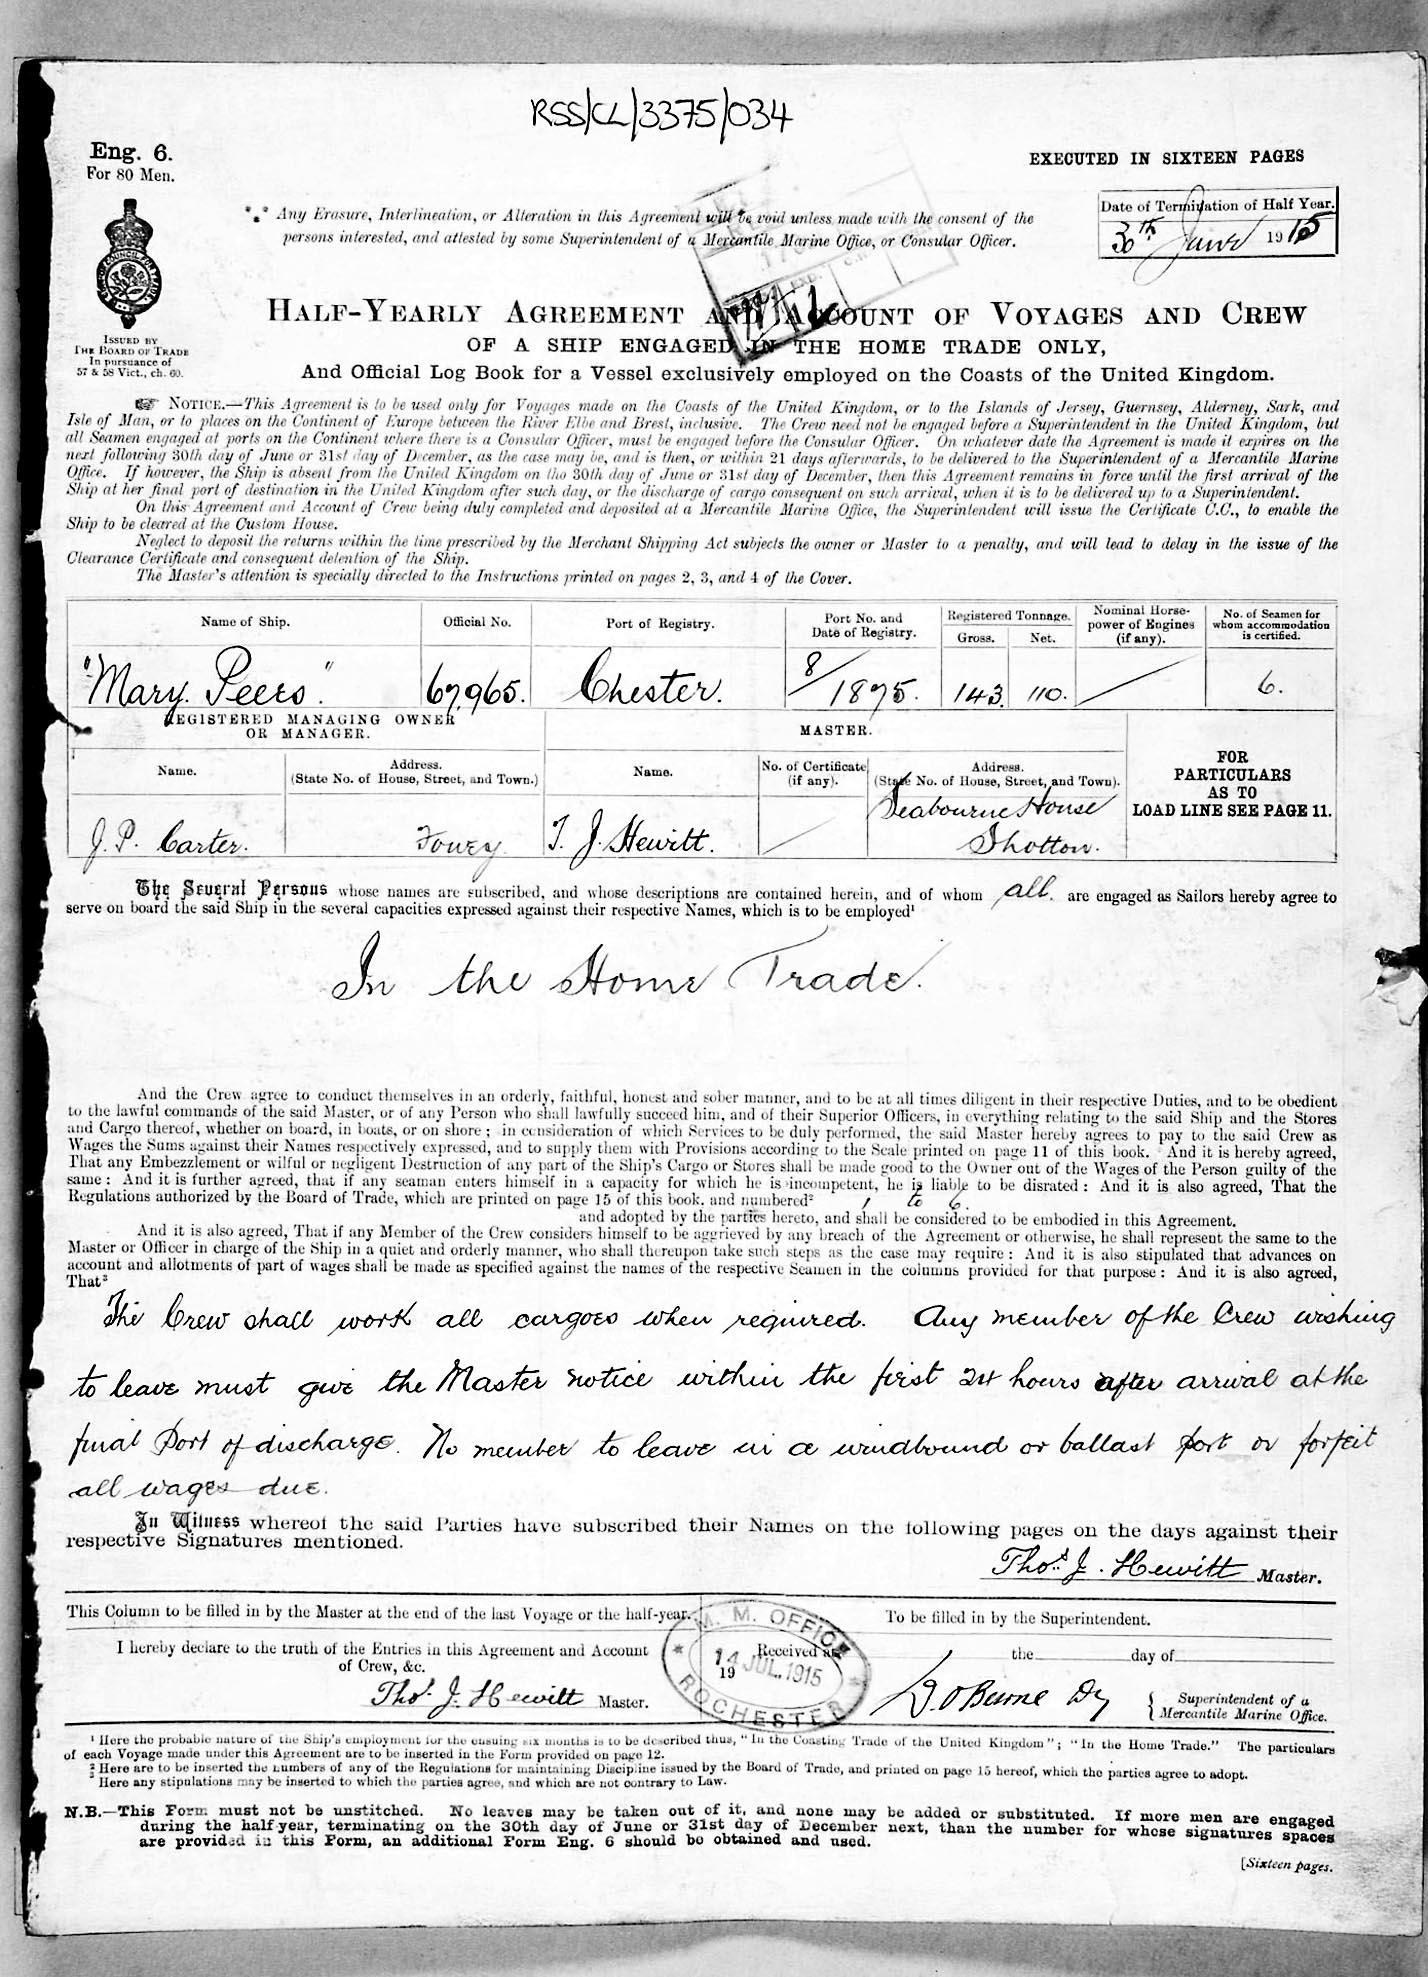 RSS/CL/3375/034
Eng. 6.
For 80 Men.
EXECUTED IN SIXTEEN PAGES
Any Erasure, Interlineation, or Alteration in this Agreement will be void unless made with the consent of the
persons interested, and attested by some Superintendent of a Mercantile Marine Office, or Consular Officer.
Date of Termination of Half Year.
30th June 1915
ISSUED BY
THE BOARD OF TRADE
In pursuance of
57 & 58 Vict., ch. 60.
HALF-YEARLY AGREEMENT AND ACCOUNT OF VOYAGES AND CREW
OF A SHIP ENGAGED IN THE HOME TRADE ONLY,
And Official Log Book for a Vessel exclusively employed on the Coasts of the United Kingdom.
NOTICE.—This Agreement is to be used only for Voyages made on the Coasts of the United Kingdom, or to the Islands of Jersey, Guernsey, Alderney, Sark, and
Isle of Man, or to places on the Continent of Europe between the River Elbe and Brest, inclusive. The Crew need not be engaged before a Superintendent in the United Kingdom, but
all Seamen engaged at ports on the Continent where there is a Consular Officer, must be engaged before the Consular Officer. On whatever date the Agreement is made it expires on the
next following 30th day of June or 31st day of December, as the case may be, and is then, or within 21 days afterwards, to be delivered to the Superintendent of a Mercantile Marine
Office. If however, the Ship is absent from the United Kingdom on the 30th day of June or 31st day of December, then this Agreement remains in force until the first arrival of the
Ship at her final port of destination in the United Kingdom after such day, or the discharge of cargo consequent on such arrival, when it is to be delivered up to a Superintendent.
On this Agreement and Account of Crew being duly completed and deposited at a Mercantile Marine Office, the Superintendent will issue the Certificate C.C., to enable the
Ship to be cleared at the Custom House.
Neglect to deposit the returns within the time prescribed by the Merchant Shipping Act subjects the owner or Master to a penalty, and will lead to delay in the issue of the
Clearance Certificate and consequent detention of the Ship.
The Master's attention is specially directed to the Instructions printed on pages 2, 3, and 4 of the Cover.
Name of Ship. Official No. Port of Registry. Port No. and Date of Registry. Registered Tonnage. Gross. Net. Nominal Horse-power of Engines (if any). No. of Seamen for whom accommodation is certified.
"Mary Peers." 67,965. Chester. 8/1875. 143. 110. / 6.
REGISTERED MANAGING OWNER
OR MANAGER.
MASTER.
Name. Address. (State No. of House, Street, and Town.) Name. No. of Certificate (if any). Address. (State No. of House, Street, and Town).
FOR
PARTICULARS
AS TO
LOAD LINE SEE PAGE 11.
J. P. Carter. Fowey. T. J. Hewitt. / Seabourne House
Shotton.
The Several Persons whose names are subscribed, and whose descriptions are contained herein, and of whom all. are engaged as Sailors hereby agree to
serve on board the said Ship in the several capacities expressed against their respective Names, which is to be employed¹
In the Home Trade.
And the Crew agree to conduct themselves in an orderly, faithful, honest and sober manner, and to be at all times diligent in their respective Duties, and to be obedient
to the lawful commands of the said Master, or of any Person who shall lawfully succeed him, and of their Superior Officers, in everything relating to the said Ship and the Stores
and Cargo thereof, whether on board, in boats, or on shore; in consideration of which Services to be duly performed, the said Master hereby agrees to pay to the said Crew as
Wages the Sums against their Names respectively expressed, and to supply them with Provisions according to the Scale printed on page 11 of this book. And it is hereby agreed,
That any Embezzlement or wilful or negligent Destruction of any part of the Ship's Cargo or Stores shall be made good to the Owner out of the Wages of the Person guilty of the
same: And it is further agreed, that if any seaman enters himself in a capacity for which he is incompetent, he is liable to be disrated: And it is also agreed, That the
Regulations authorized by the Board of Trade, which are printed on page 15 of this book, and numbered² 1 to 6.
and adopted by the parties hereto, and shall be considered to be embodied in this Agreement.
And it is also agreed, That if any Member of the Crew considers himself to be aggrieved by any breach of the Agreement or otherwise, he shall represent the same to the
Master or Officer in charge of the Ship in a quiet and orderly manner, who shall thereupon take such steps as the case may require: And it is also stipulated that advances on
account and allotments of part of wages shall be made as specified against the names of the respective Seamen in the columns provided for that purpose: And it is also agreed,
That³
The Crew shall work all cargoes when required. Any member of the Crew wishing
to leave must give the Master notice within the first 24 hours after arrival at the
final Port of discharge. No member to leave in a windbound or ballast port or forfeit
all wages due.
In Witness whereof the said Parties have subscribed their Names on the following pages on the days against their
respective Signatures mentioned.
Thos. J. Hewitt Master.
This Column to be filled in by the Master at the end of the last Voyage or the half-year.
To be filled in by the Superintendent.
I hereby declare to the truth of the Entries in this Agreement and Account
of Crew, &c.
Thos. J. Hewitt Master.
M. M. OFFICE
14 JUL. 1915
ROCHESTER
Received at the day of
19
Superintendent of a
Mercantile Marine Office.
¹ Here the probable nature of the Ship's employment for the ensuing six months is to be described thus, "In the Coasting Trade of the United Kingdom"; "In the Home Trade." The particulars
of each Voyage made under this Agreement are to be inserted in the Form provided on page 12.
² Here are to be inserted the numbers of any of the Regulations for maintaining Discipline issued by the Board of Trade, and printed on page 15 hereof, which the parties agree to adopt.
³ Here any stipulations may be inserted to which the parties agree, and which are not contrary to Law.
N.B.—This Form must not be unstitched. No leaves may be taken out of it, and none may be added or substituted. If more men are engaged
during the half-year, terminating on the 30th day of June or 31st day of December next, than the number for whose signatures spaces
are provided in this Form, an additional Form Eng. 6 should be obtained and used.
[Sixteen pages.